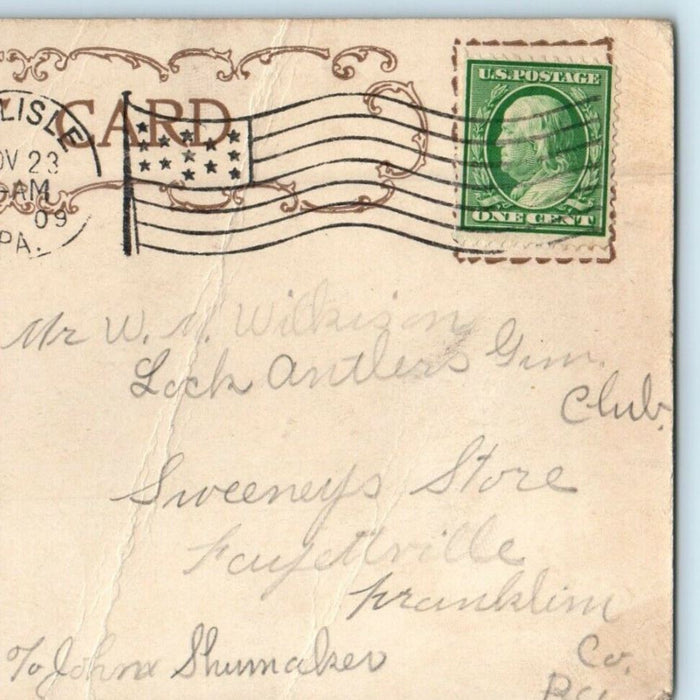 CARD
LISLE
OV 23
AM
09
PA.
U.S. POSTAGE
ONE CENT
Mr W. Wilkison
Lock Antlers Gun
Club.
Sweeneys Store
Fayettville
Franklin
Co.
Pa
To John Shumaker